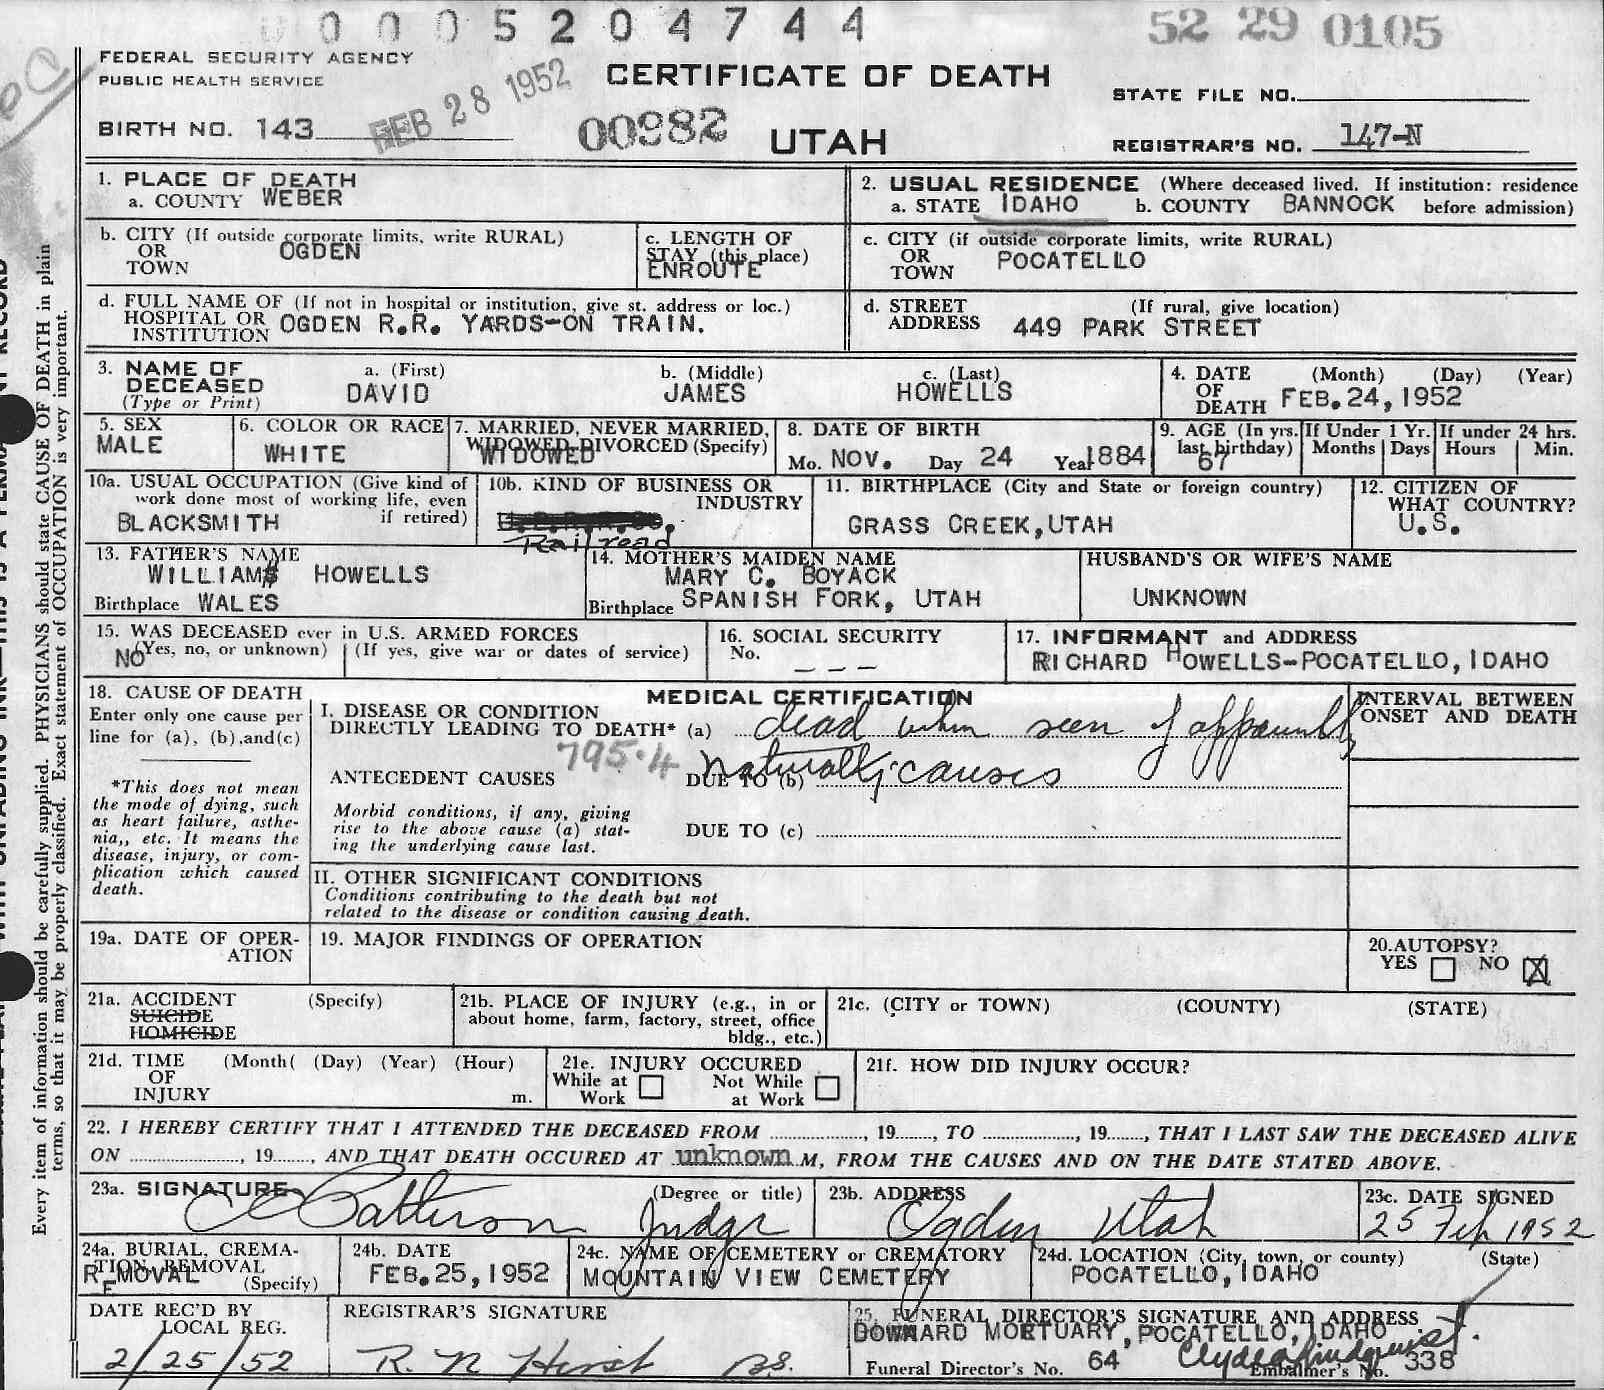 0 0 0 5 2 0 4 7 4 4
52 29 0105
FEDERAL SECURITY AGENCY
PUBLIC HEALTH SERVICE
FEB 28 1952
CERTIFICATE OF DEATH
STATE FILE NO.
BIRTH NO. 143
00982
UTAH
REGISTRAR'S NO. 147-N
1. PLACE OF DEATH
a. COUNTY WEBER
2. USUAL RESIDENCE (Where deceased lived. If institution: residence
a. STATE IDAHO b. COUNTY BANNOCK before admission)
b. CITY (If outside corporate limits, write RURAL)
OR
TOWN
OGDEN
c. LENGTH OF
STAY (this place)
ENROUTE
c. CITY (if outside corporate limits, write RURAL)
OR
TOWN
POCATELLO
d. FULL NAME OF (If not in hospital or institution, give st. address or loc.)
HOSPITAL OR
INSTITUTION
OGDEN R.R. YARDS-ON TRAIN.
d. STREET (If rural, give location)
ADDRESS 449 PARK STREET
3. NAME OF
DECEASED
(Type or Print)
a. (First)
DAVID
b. (Middle)
JAMES
c. (Last)
HOWELLS
4. DATE (Month) (Day) (Year)
OF
DEATH FEB.24,1952
5. SEX
MALE
6. COLOR OR RACE
WHITE
7. MARRIED, NEVER MARRIED,
WIDOWED, DIVORCED (Specify)
WIDOWED
8. DATE OF BIRTH
Mo. NOV. Day 24 Year 1884
9. AGE (In yrs.
last birthday)
67
If Under 1 Yr.
Months Days
If under 24 hrs.
Hours Min.
10a. USUAL OCCUPATION (Give kind of
work done most of working life, even
if retired)
BLACKSMITH
10b. KIND OF BUSINESS OR
INDUSTRY
Railroad
11. BIRTHPLACE (City and State or foreign country)
GRASS CREEK,UTAH
12. CITIZEN OF
WHAT COUNTRY?
U.S.
13. FATHER'S NAME
WILLIAMS HOWELLS
Birthplace WALES
14. MOTHER'S MAIDEN NAME
MARY C. BOYACK
Birthplace SPANISH FORK, UTAH
HUSBAND'S OR WIFE'S NAME
UNKNOWN
15. WAS DECEASED ever in U.S. ARMED FORCES
(Yes, no, or unknown) (If yes, give war or dates of service)
NO
16. SOCIAL SECURITY
No.
_ _ _
17. INFORMANT and ADDRESS
RICHARD HOWELLS-POCATELLO, IDAHO
18. CAUSE OF DEATH
Enter only one cause per
line for (a), (b),and(c)
*This does not mean
the mode of dying, such
as heart failure, asthe-
nia,, etc. It means the
disease, injury, or com-
plication which caused
death.
MEDICAL CERTIFICATION
I. DISEASE OR CONDITION
DIRECTLY LEADING TO DEATH* (a) dead when seen of apparently
795.4
ANTECEDENT CAUSES DUE TO (b) naturally causes
Morbid conditions, if any, giving
rise to the above cause (a) stat-
ing the underlying cause last.
DUE TO (c)
II. OTHER SIGNIFICANT CONDITIONS
Conditions contributing to the death but not
related to the disease or condition causing death.
INTERVAL BETWEEN
ONSET AND DEATH
19a. DATE OF OPER-
ATION
19. MAJOR FINDINGS OF OPERATION
20.AUTOPSY?
YES NO X
21a. ACCIDENT (Specify)
SUICIDE
HOMICIDE
21b. PLACE OF INJURY (e.g., in or
about home, farm, factory, street, office
bldg., etc.)
21c. (CITY or TOWN) (COUNTY) (STATE)
21d. TIME (Month( (Day) (Year) (Hour)
OF
INJURY m.
21e. INJURY OCCURED
While at Work
Not While at Work
21f. HOW DID INJURY OCCUR?
22. I HEREBY CERTIFY THAT I ATTENDED THE DECEASED FROM ............, 19......, TO ............, 19......, THAT I LAST SAW THE DECEASED ALIVE
ON ............, 19......, AND THAT DEATH OCCURED AT unknown M, FROM THE CAUSES AND ON THE DATE STATED ABOVE.
23a. SIGNATURE (Degree or title)
Patterson Judge
23b. ADDRESS
Ogden Utah
23c. DATE SIGNED
25 Feb 1952
24a. BURIAL, CREMA-
TION, REMOVAL
(Specify)
REMOVAL
24b. DATE
FEB.25,1952
24c. NAME OF CEMETERY or CREMATORY
MOUNTAIN VIEW CEMETERY
24d. LOCATION (City, town, or county) (State)
POCATELLO, IDAHO
DATE REC'D BY
LOCAL REG.
2/25/52
REGISTRAR'S SIGNATURE
R. N. Hirst BS.
25. FUNERAL DIRECTOR'S SIGNATURE AND ADDRESS
DOWNARD MORTUARY, POCATELLO, IDAHO
Funeral Director's No. 64
Embalmer's No. 338
Every item of information should be carefully supplied. PHYSICIANS should state CAUSE OF DEATH in plain
terms, so that it may be properly classified. Exact statement of OCCUPATION is very important.